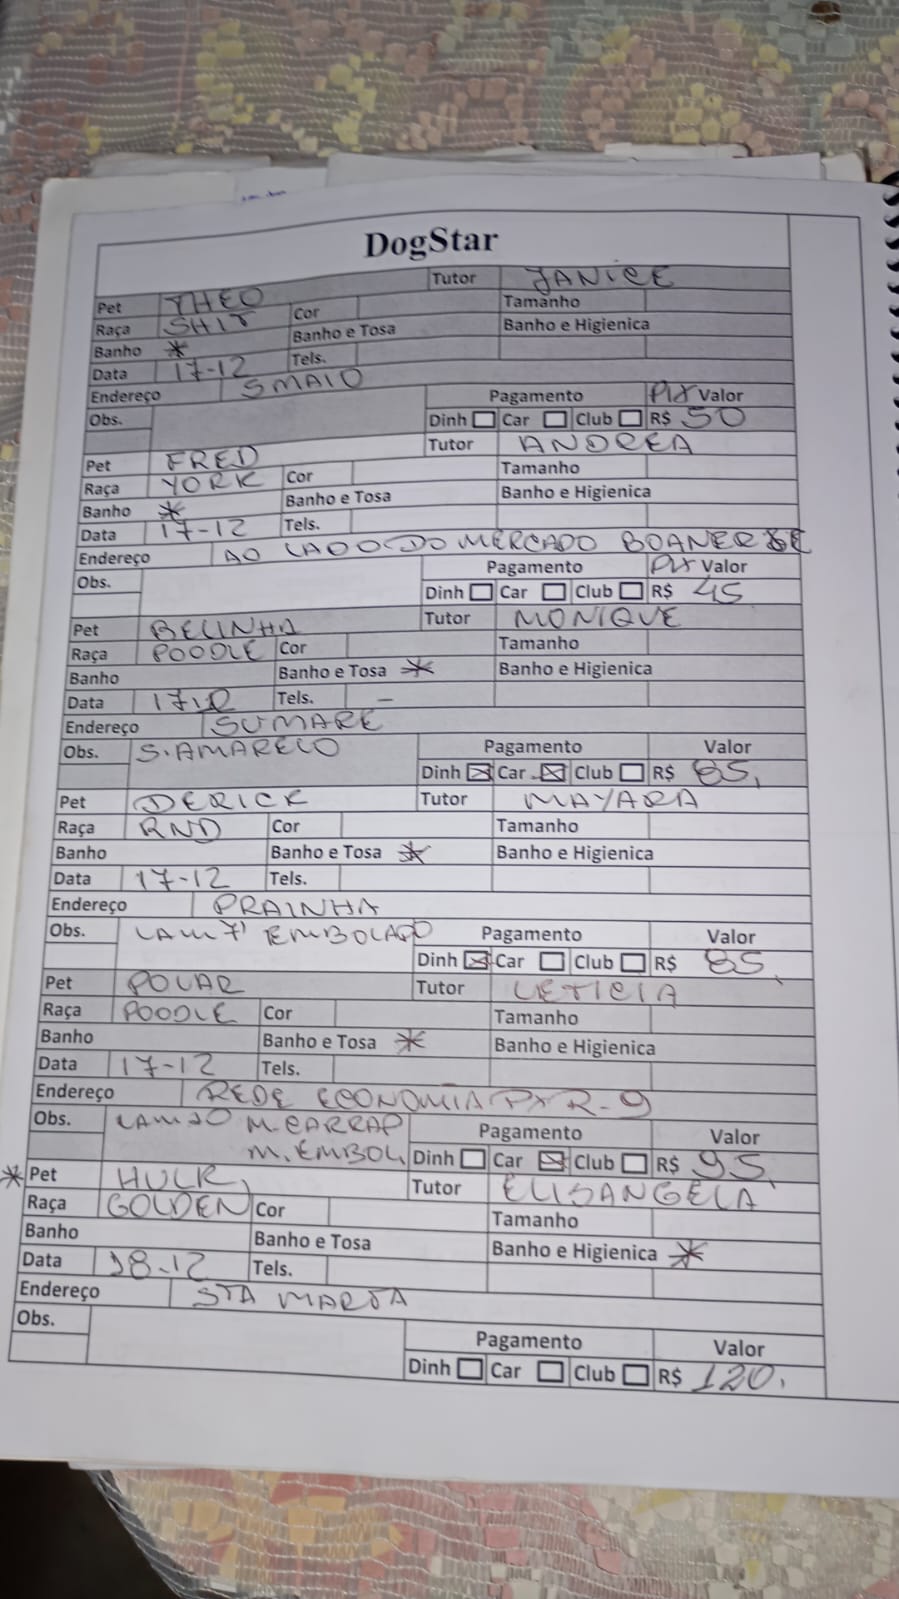 DogStar
Pet THEO Tutor JANICE
Raça SHIT Cor Tamanho
Banho * Banho e Tosa Banho e Higienica
Data 17-12 Tels.
Endereço 5 MAIO
Obs. Pagamento Pix Valor
Dinh Car Club R$ 50
Pet FRED Tutor ANDREA
Raça YORK Cor Tamanho
Banho * Banho e Tosa Banho e Higienica
Data 17-12 Tels.
Endereço AO LADO DO MERCADO
Obs. Pagamento Pix Valor
Dinh Car Club R$ 45
Pet BELINHA Tutor MONIQUE
Raça POODLE Cor Tamanho
Banho Banho e Tosa * Banho e Higienica
Data 17.12 Tels. –
Endereço SUMARE
Obs. S.AMARELO Pagamento Valor
Dinh Car Club R$ 85,
Pet DERICK Tutor MAYARA
Raça RND Cor Tamanho
Banho Banho e Tosa * Banho e Higienica
Data 17-12 Tels.
Endereço PRAINHA
Obs. LAM 7 EMBOLADO Pagamento Valor
Dinh Car Club R$ 85,
Pet POLAR Tutor LETICIA
Raça POODLE Cor Tamanho
Banho Banho e Tosa * Banho e Higienica
Data 17-12 Tels.
Endereço REDE ECONOMIA R-9
Obs. M.CARRAP Pagamento Valor
M.EMBOL. Dinh Car Club R$ 95,
* Pet HULK, Tutor ELISANGELA
Raça GOLDEN Cor Tamanho
Banho Banho e Tosa Banho e Higienica *
Data 18-12 Tels.
Endereço STA MARTA
Obs. Pagamento Valor
Dinh Car Club R$ 120,